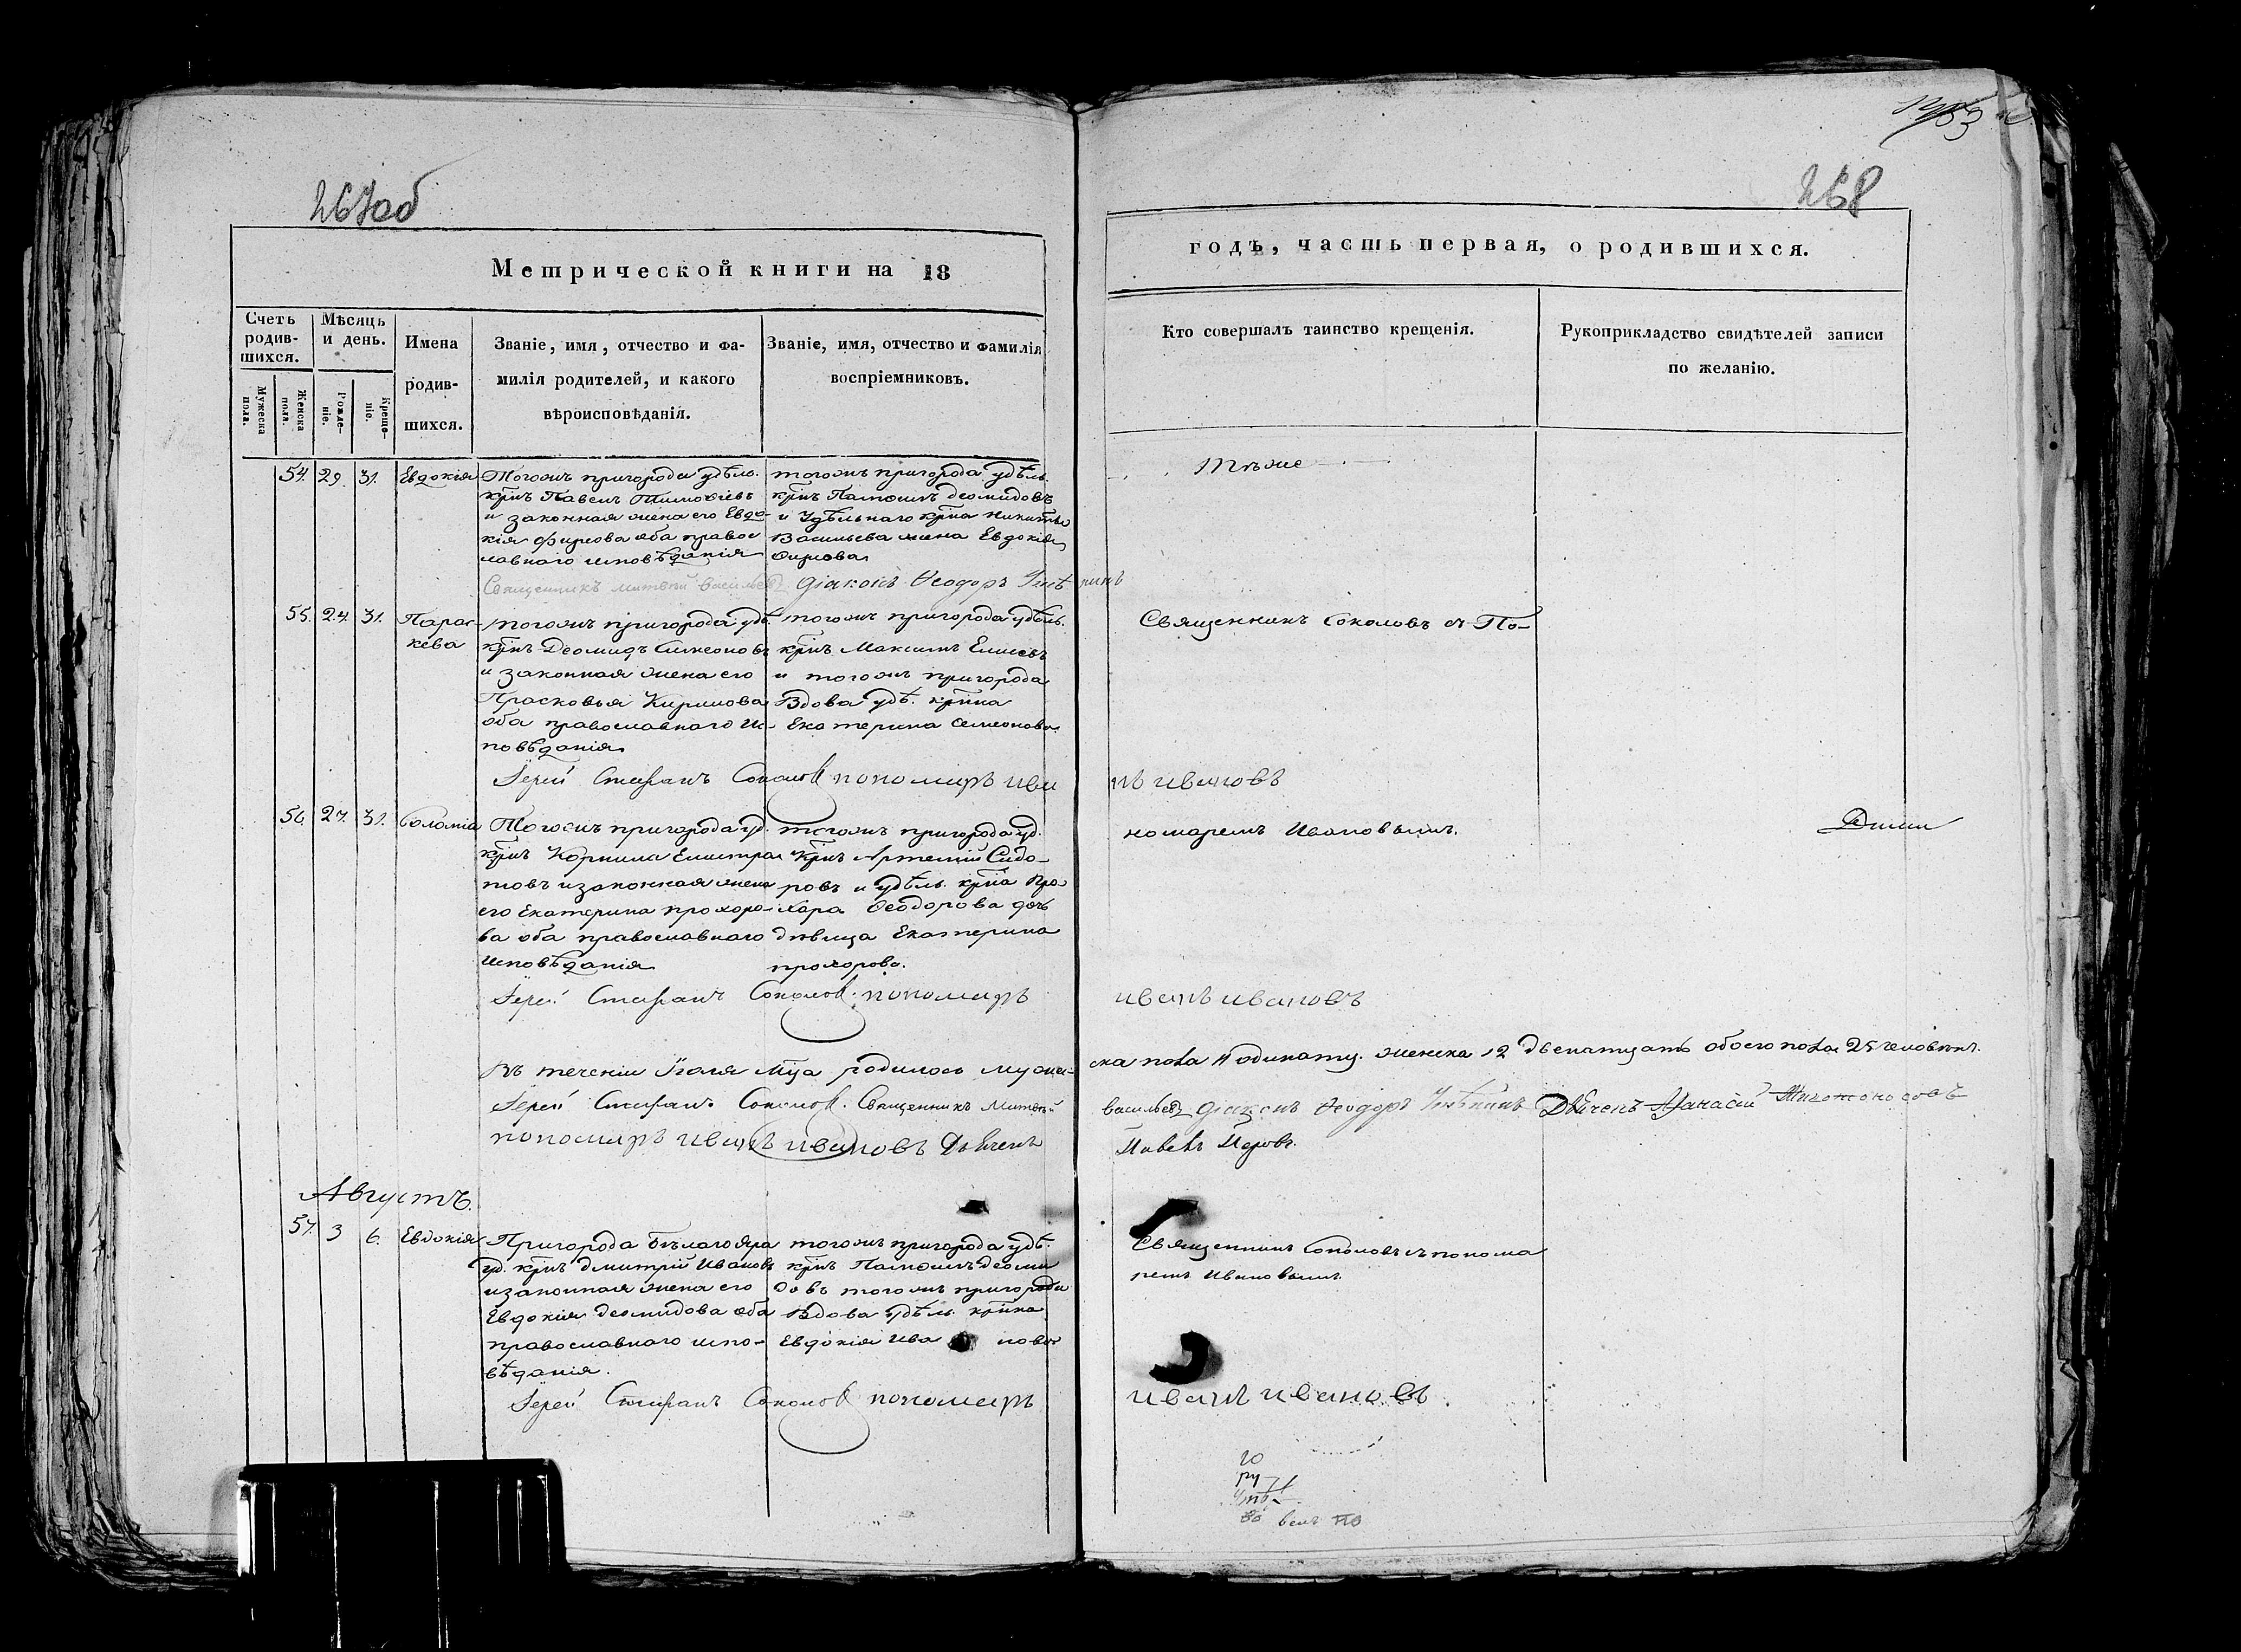 267об
268
Метрической книги на 18
годъ, часть первая, о родившихся.
Счетъ родив-шихся.
Мужеска пола.
Женска пола.
Мѣсяцъ и день.
Рожде-ніе.
Креще-ніе.
Имена
родив-
шихся.
Званіе, имя, отчество и фа-
милія родителей, и какого
вѣроисповѣданія.
Званіе, имя, отчество и фамилія
воспріемниковъ.
Кто совершалъ таинство крещенія.
Рукоприкладство свидѣтелей записи
по желанію.
54. 29. 31. Евдокія
Тогожъ пригорода удѣль.
крнъ Павелъ Тимофіевъ
и законная жена его Евдо-
кія Фирсова оба правос
лавнаго исповѣданія
тогожъ пригорода удѣль.
крнъ Деомидовъ
и Удѣльнаго крна Никиты
Васильева жена Евдокія
Фирсова
Тѣже
Священникъ Матвѣй Васильевъ Діаконъ Ѳеодоръ
55. 24. 31. Парас-
кева
тогожъ пригорода удѣ.
крнъ Деомидъ Симеоновъ
и законная жена его
Прасковья Кирилова
оба православнаго Ис-
повѣданія
тогожъ пригорода удѣль.
крнъ Максимъ Елисѣевъ
и тогожъ пригорода
Вдова удѣ. крнка
Екатерина Семеонова.
Священникъ Соколовъ съ По-
Іерей Стефанъ Соколовъ пономаръ Иванъ Ивановъ
56. 27. 31. Соломія
Тогожъ пригорода уд.
крнъ Корнила Елистра
товъ и законная жена
его Екатерина Прохоро-
ва оба православнаго
Исповѣданія
тогожъ пригорода уд.
крнъ Артемій Сидо-
ровъ и удѣль. крна Про
хора Ѳеодорова дочь
дѣвица Екатерина
Прохорова.
номаремъ Ивановымъ.
Іерей Стефанъ Соколовъ пономаръ Иванъ Ивановъ
Въ теченіи Іюля мца родилось муже-ска пола одинатц. женска 12 двенатцать обоего пола 25 человѣкъ.
Іерей Стефанъ Соколовъ. Священникъ Матвѣй Васильевъ Діаконъ Ѳеодоръ Дьячекъ Афанасій
пономаръ Иванъ Ивановъ Дьячекъ Павелъ
Августъ.
57. 3 6. Евдокія
Пригорода Бѣлаго Яра
уд. крнъ Дмитрій Ивановъ
и законная жена его
Евдокія Деомидова оба
православнаго испо-
вѣданія.
тогожъ пригорода удѣ.
крнъ Деоми
довъ тогожъ пригорода
Вдова удѣль. крнка
Евдокія Ива нова
Священникъ Соколовъ съ понома
ремъ Ивановымъ.
Іерей Стефанъ Соколовъ пономаръ Иванъ Ивановъ.